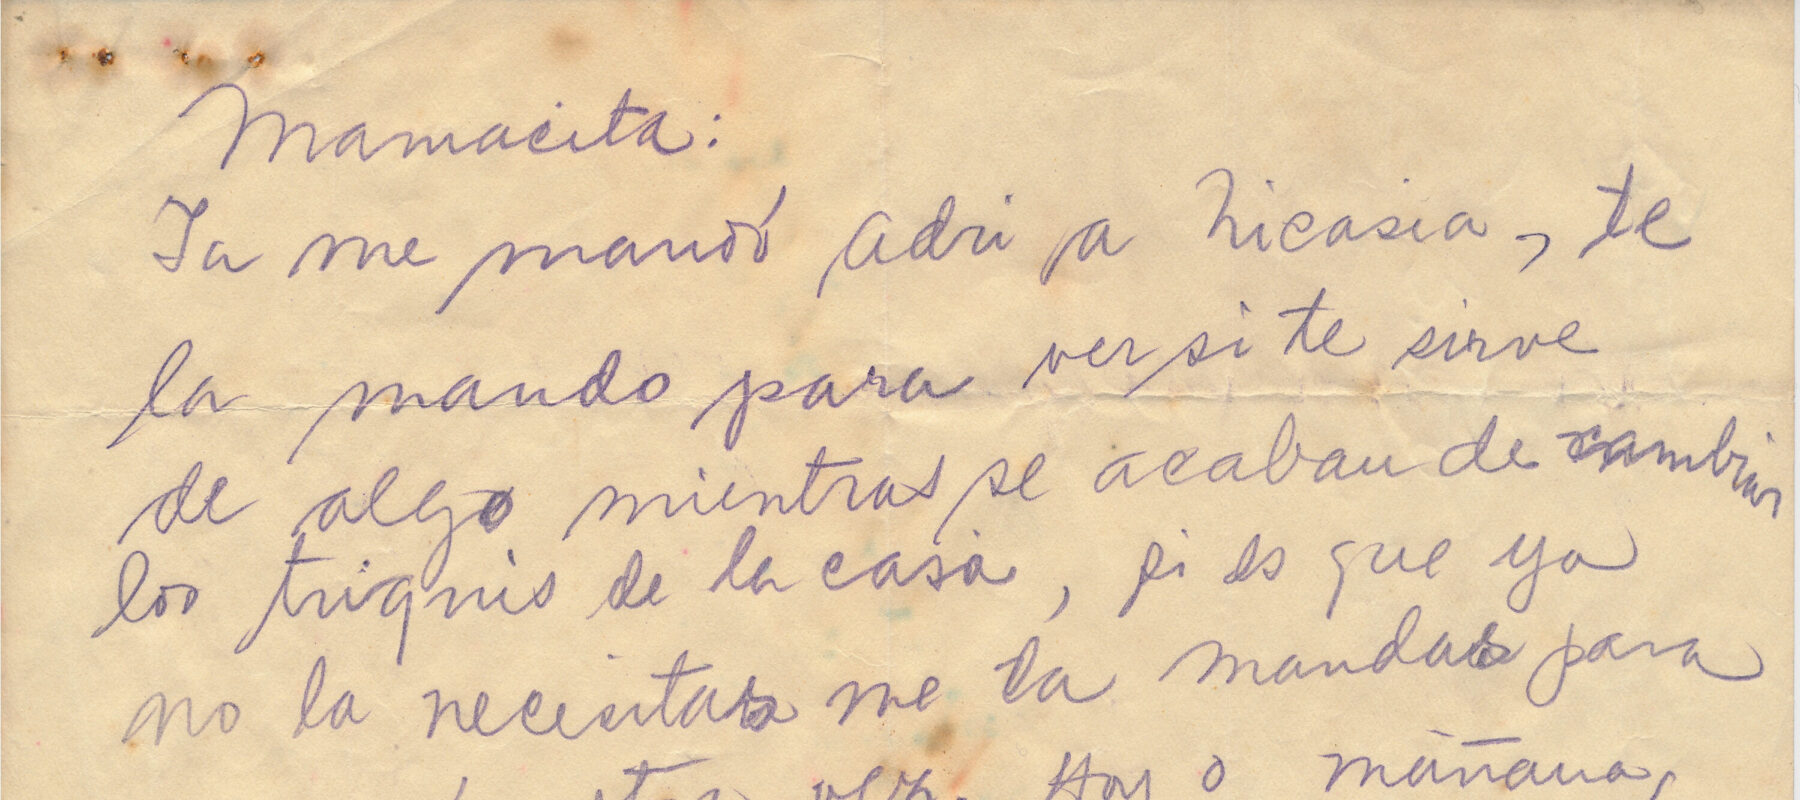 Mamacita:
Ya me mandó Adri a Nicasia, te
la mando para ver si te sirve
de algo mientras se acaban de cambiar
los triquis de la casa, si es que ya
no la necesitas me la mandas para
vez. Hoy o mañana,